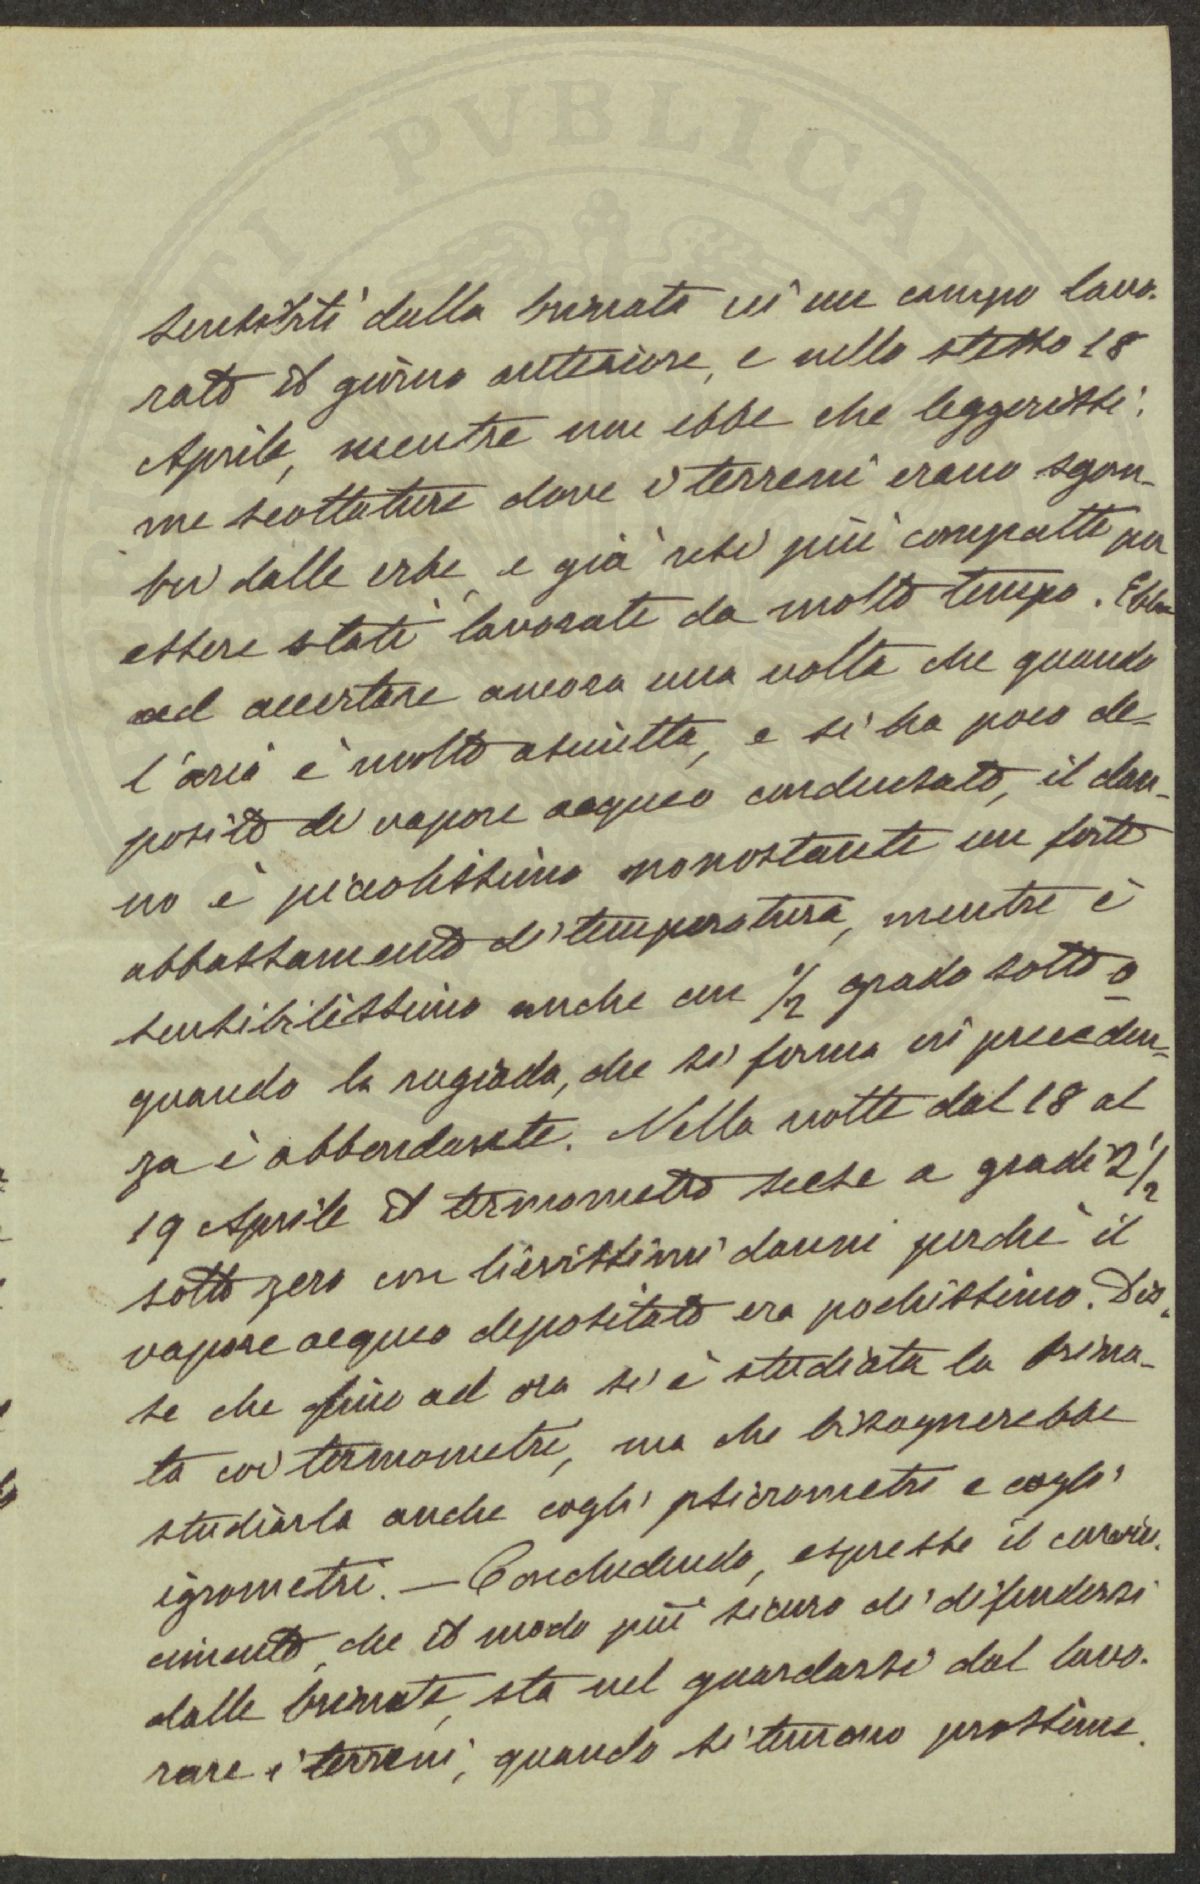 PVBLICAE
sensibili dalla brinata in un campo lavo-
rato il giorno anteriore, e nello stesso 18
Aprile, mentre non ebbe che leggerissi-
me scottature dove i terreni erano sgom-
bri dalle erbe, e già resi più compatti per
essere stati lavorati da molto tempo. Ebbe
ad accertare ancora una volta che quando
l'aria è molto asciutta, e si ha poco de-
posito di vapore acqueo condensato, il dan-
no è piccolissimo nonostante un forte
abbassamento di temperatura, mentre è
sensibilissimo anche con 1/2 grado sotto 0
quando la rugiada, che si forma in preceden-
za è abbondante. Nella notte dal 18 al
19 Aprile il termometro scese a gradi 2 1/2
sotto zero con lievissimi danni perchè il
vapore acqueo depositato era pochissimo. Dis-
se che fino ad ora si è studiata la brina-
ta coi termometri, ma che bisognerebbe
studiarla anche cogli psicrometri e cogli
igrometri. — Concludendo, espresse il convin-
cimento, che il modo più sicuro di difendersi
dalle brinate, sta nel guardarsi dal lavo-
rare i terreni, quando si temono prossime.